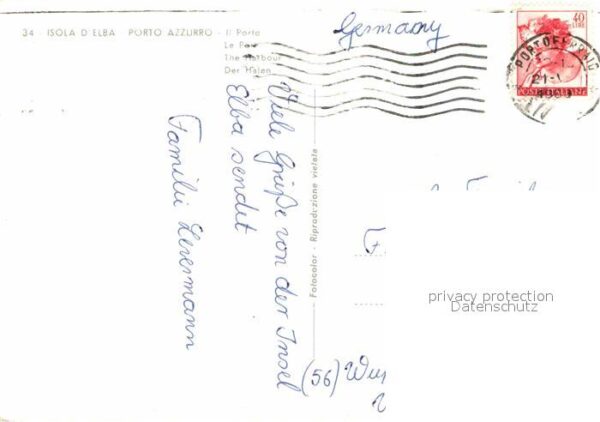 34 - ISOLA D'ELBA PORTO AZZURRO - Il Porto
Le Port
The Harbour
Der Hafen
Germany
40
LIRE
PORTOFERRAIO
21-1
POSTE ITALIANE
Viele Grüße von der Insel
Elba sendet
Familie
Fotocolor - Riproduzione vietata
privacy protection
Datenschutz
(56) Wup